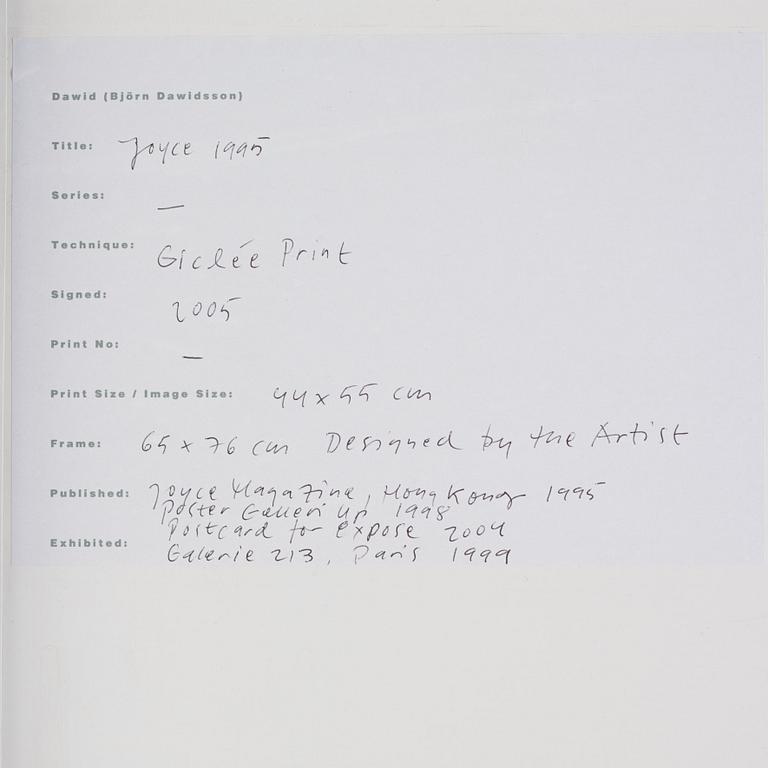 Dawid (Björn Dawidsson)
Title: Joyce 1995
Series: —
Technique: Giclée Print
Signed: 2005
Print No: —
Print Size / Image Size: 44 x 55 cm
Frame: 65 x 76 cm Designed by the Artist
Published: Joyce Magazine, Hong Kong 1995
Poster Galleri Up 1998
Postcard for Expose 2004
Exhibited: Galerie 213, Paris 1999